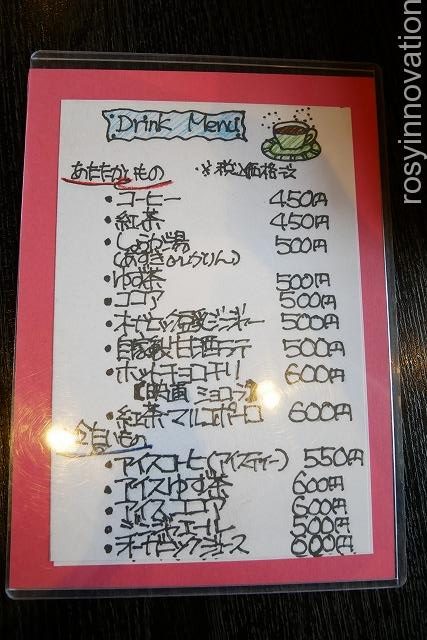 Drink Menu
あたたかいもの ※税込価格です
・コーヒー 450円
・紅茶 450円
・しょうが湯 500円
(あずき or かりん)
・ゆず茶 500円
・ココア 500円
・オーガニック豆乳ビンチャー 500円
・自家製甘酒ラテ 500円
・ホットチョコチリ 600円
【映画 ショコラ】
・紅茶・マルコポーロ 600円
冷たいもの
・アイスコーヒー(アイスティー) 550円
・アイスゆず茶 600円
・アイスココア 600円
・ジンジャエール 500円
・オーガニックジュース 600円
rosyinnovation